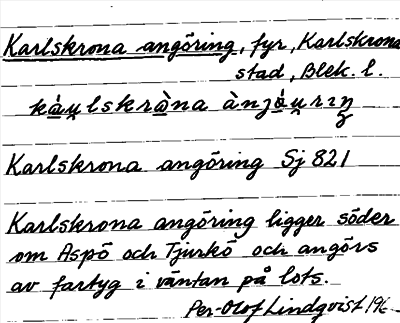 Karlskrona angöring, fyr, Karlskrona
stad, Blek. l.
kàu̯lskràna ànjá̤u̯rɪŋ
Karlskrona angöring Sj 821
Karlskrona angöring ligger söder
om Aspö och Tjurkö och angörs
av fartyg i väntan på lots.
Per-Olof Lindqvist 196